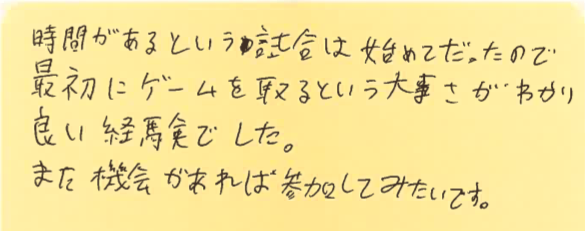 時間があるという試合は始めてだったので
最初にゲームを取るという大事さがわかり
良い経験でした。
また機会があれば参加してみたいです。